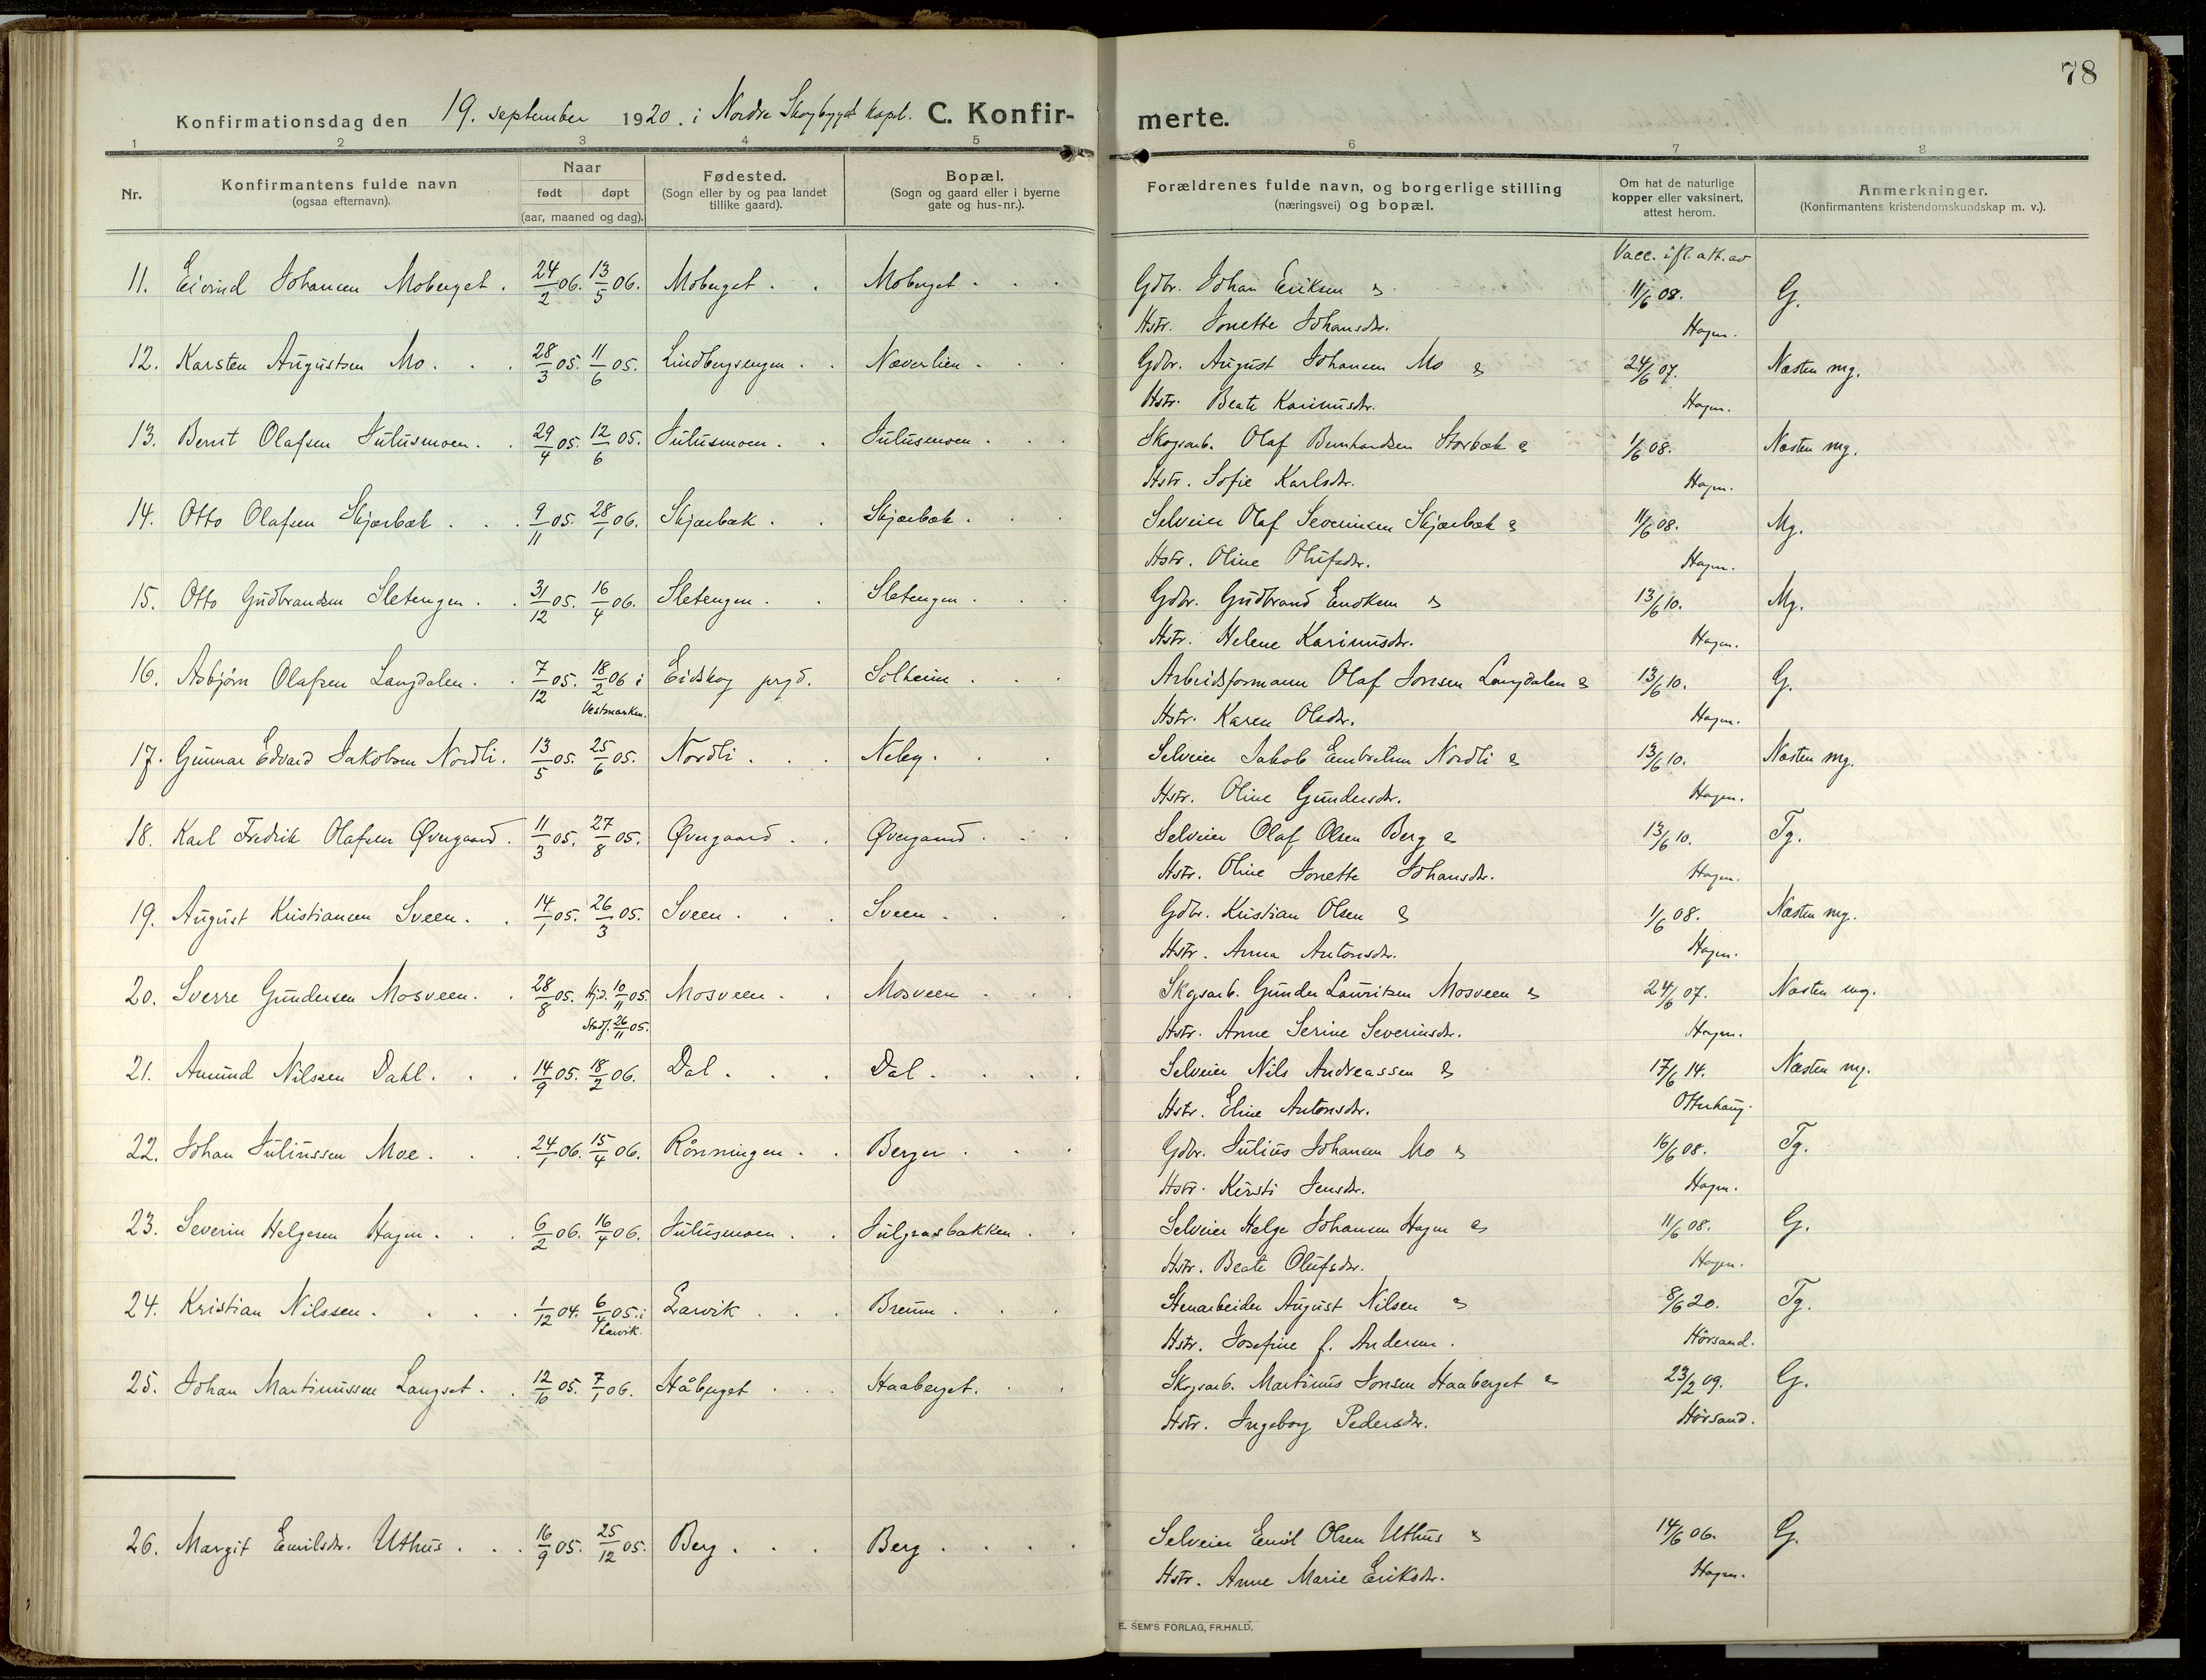 78
Konfirmationsdag den 19. september 1920. i Nordre Skogbygd kapel. C. Konfir-merte.
1 2 3 4 5 6 7 8
Nr. Konfirmantens fulde navn (ogsaa efternavn). Naar født døpt (aar, maaned og dag). Fødested. (Sogn eller by og paa landet tillike gaard). Bopæl. (Sogn og gaard eller i byerne gate og hus-nr.). Forældrenes fulde navn, og borgerlige stilling (næringsvei) og bopæl. Om hat de naturlige kopper eller vaksinert, attest herom. Anmerkninger. (Konfirmantens kristendomskundskap m. v.).
Vacc. ifl. att. av
11. Eivind Johansen Moberget. 24/2 06. 13/5 06. Moberget. Moberget. Gdbr. Johan Eriksen & 11/6 08. G.
Hstr. Jonette Johansdr. Hagen.
12. Karsten Augustsen Mo. 28/3 05. 11/6 05. Lindbergsengen. Næverlien. Gdbr. August Johansen Mo & 24/6 07. Næsten mg.
Hstr. Beate Karinusdr. Hagen.
13. Bernt Olafsen Julusmoen. 29/4 05. 12/6 05. Julusmoen. Julusmoen. Skogsarb. Olaf Bernhardsen Storbæk & 1/6 08. Næsten mg.
Hstr. Sofie Karlsdr. Hagen.
14. Otto Olafsen Skjærbæk. 9/11 05. 28/1 06. Skjærbæk. Skjærbæk. Selveier Olaf Severinsen Skjærbæk & 11/6 08. Mg.
Hstr. Oline Olufsdr. Hagen.
15. Otto Gudbrandsen Sletengen. 31/12 05. 16/4 06. Sletengen. Sletengen. Gdbr. Gudbrand Enoksen & 13/6 10. Mg.
Hstr. Helene Karinusdr. Hagen.
16. Asbjørn Olafsen Langdalen. 7/12 05. 18/2 06 i Vestmarken. Eidskog prgd. Solheim. Arbeidsformann Olaf Jonsen Langdalen & 13/6 10. G.
Hstr. Karen Olsdr. Hagen.
17. Gunnar Edvard Jakobsen Nordli. 13/5 05. 25/6 05. Nordli. Neby. Selveier Jakob Embretsen Nordli & 13/6 10. Næsten mg.
Hstr. Oline Gundersdr. Hagen.
18. Karl Fredrik Olafsen Øvergaard. 11/3 05. 27/8 05. Øvergaard. Øvergaard. Selveier Olaf Olsen Berg & 13/6 10. Tg.
Hstr. Oline Jonette Johansdr. Hagen.
19. August Kristiansen Sveen. 14/1 05. 26/3 05. Sveen. Sveen. Gdbr. Kristian Olsen & 1/6 08. Næsten mg.
Hstr. Anna Antonsdr. Hagen.
20. Sverre Gundersen Mosveen. 28/8 05. Hjd. 10/11 05. Stadf. 26/11 05. Mosveen. Mosveen. Skgsarb. Gunder Lauritsen Mosveen & 24/6 07. Næsten mg.
Hstr. Anne Serine Severinsdr. Hagen.
21. Amund Nilssen Dahl. 14/9 05. 18/2 06. Dal. Dal. Selveier Nils Andreassen & 17/6 14. Næsten mg.
Hstr. Eline Antonsdr. Otterhaug.
22. Johan Juliussen Moe. 24/1 06. 15/4 06. Rønningen. Berger. Gdbr. Julius Johansen Mo & 16/6 08. Tg.
Hstr. Kirsti Jensdr. Hagen.
23. Severin Helgesen Hagen. 6/2 06. 16/4 06. Julusmoen. Julgrasbakken. Selveier Helge Johansen Hagen & 11/6 08. G.
Hstr. Beate Olufsdr. Hagen.
24. Kristian Nilssen. 1/12 04. 6/4 05. i Larvik. Larvik. Breum. Stenarbeider August Nilsen & 8/6 20. Tg.
Hstr. Josefine f. Andersen. Hörsand.
25. Johan Martinussen Langset. 12/10 05. 7/1 06. Håberget. Haaberget. Skogsarb. Martinus Jonsen Haaberget & 23/2 09. G.
Hstr. Ingeborg Pedersdr. Hörsand.
26. Margit Emilsdr. Uthus. 16/9 05. 25/12 05. Berg. Berg. Selveier Emil Olsen Uthus & 14/6 06. G.
Hstr. Anne Marie Eriksdr. Hagen.
E. SEM'S FORLAG, FR.HALD.